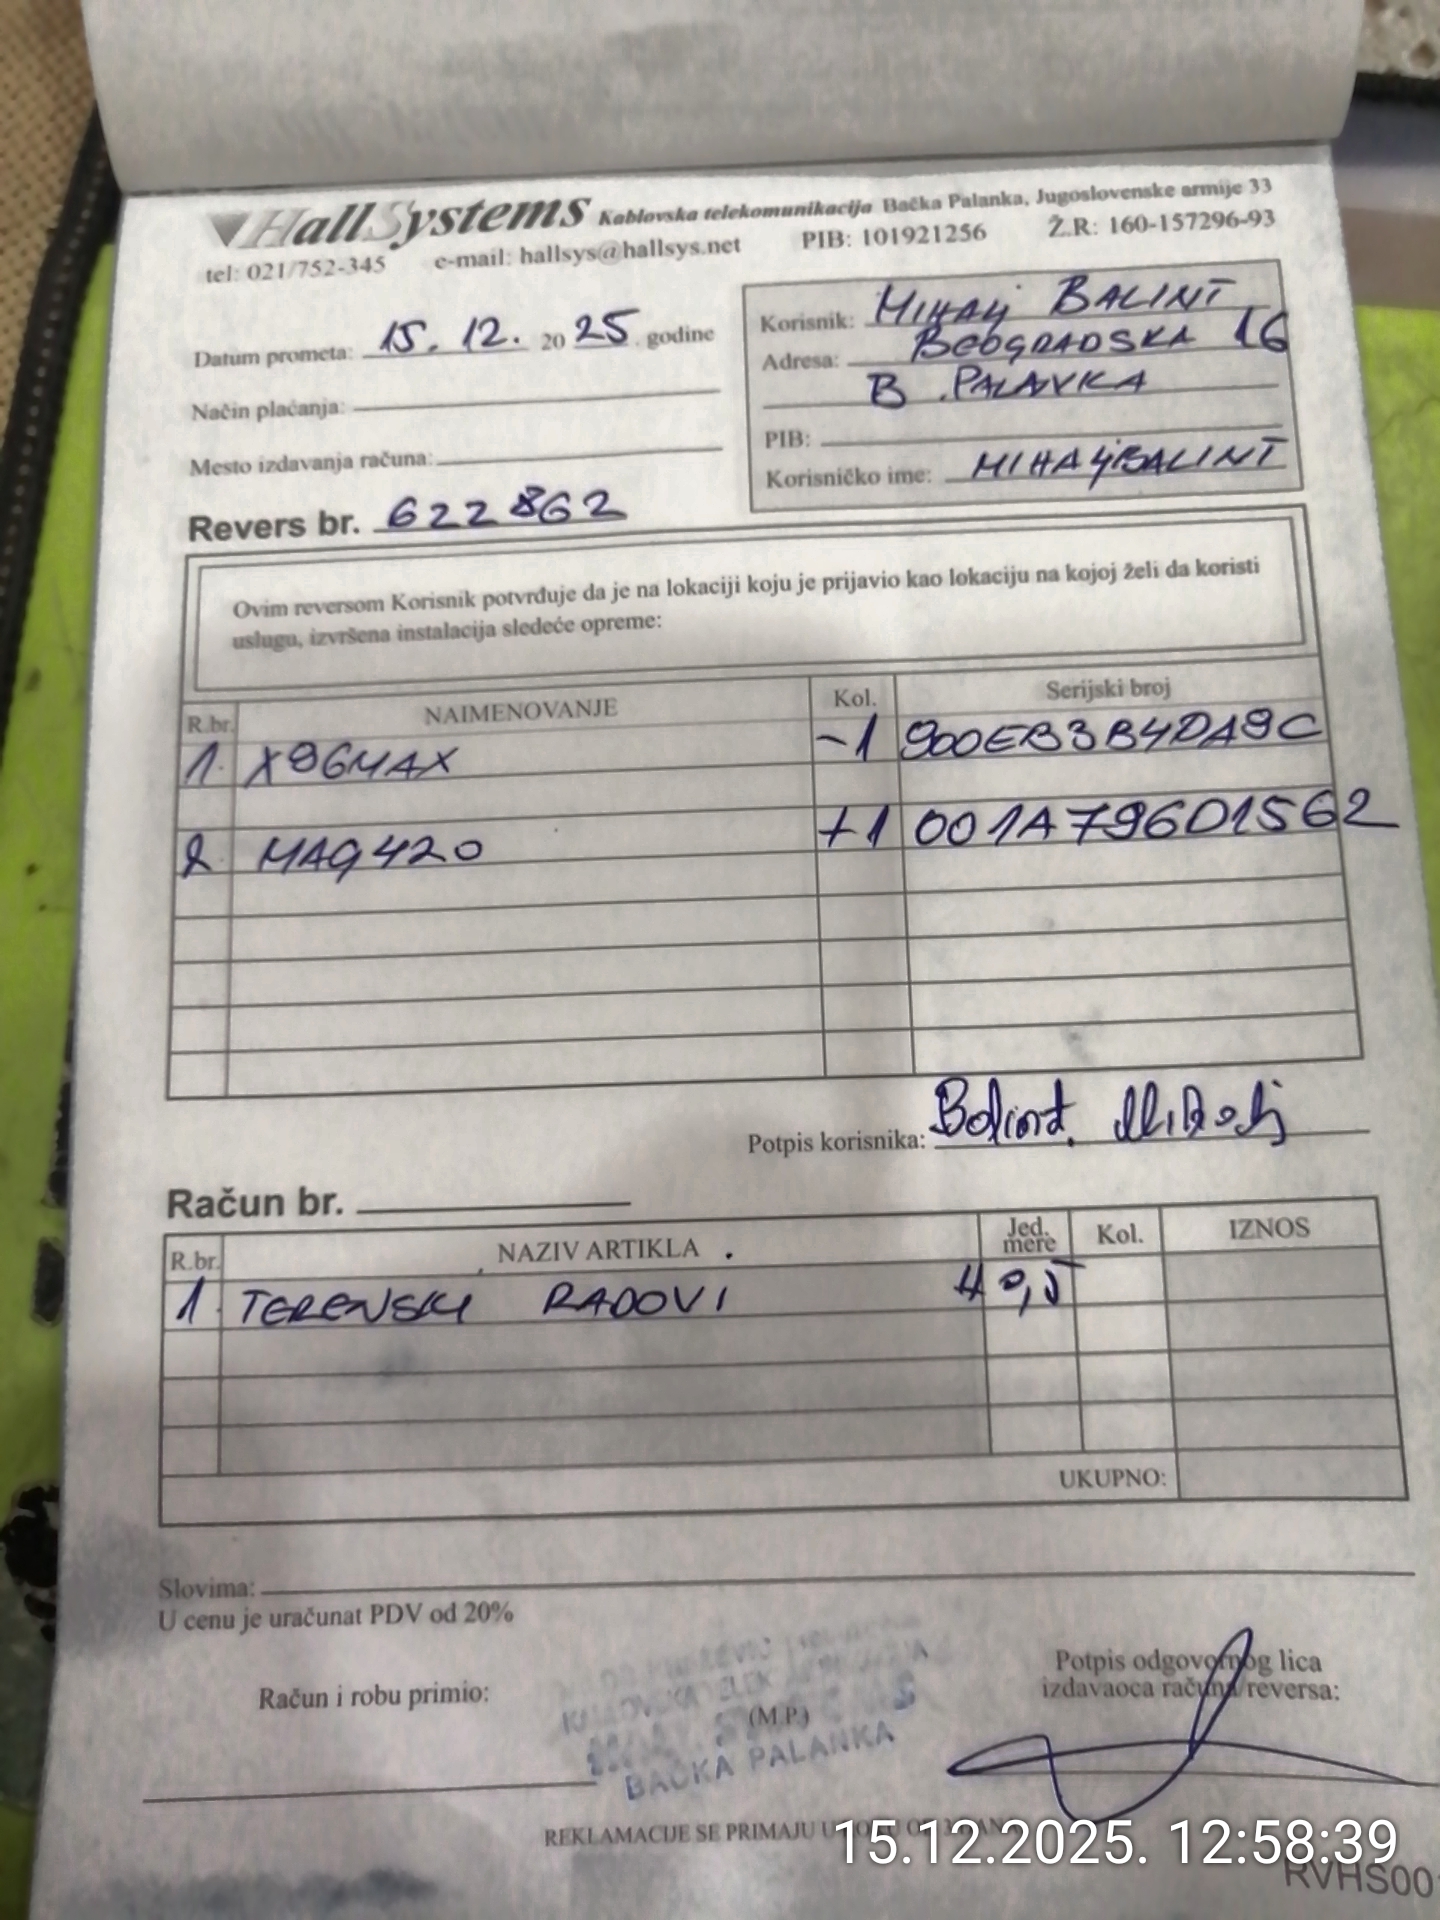 HallSystems Kablovska telekomunikacija Bačka Palanka, Jugoslovenske armije 33
tel: 021/752-345 e-mail: hallsys@hallsys.net PIB: 101921256 Ž.R: 160-157296-93
Datum prometa: 15. 12. 2025 godine
Način plaćanja:
Mesto izdavanja računa:
Revers br. 622862
Korisnik: MIHALJ BALINT
Adresa: BEOGRADSKA 16
B. PALANKA
PIB:
Korisničko ime: MIHALJBALINT
Ovim reversom Korisnik potvrđuje da je na lokaciji koju je prijavio kao lokaciju na kojoj želi da koristi
uslugu, izvršena instalacija sledeće opreme:
R.br. NAIMENOVANJE Kol. Serijski broj
1. X96MAX -1 900EB3B4DA9C
2 MAG420 +1 001A796D1562
Potpis korisnika: Balint Mihalj
Račun br.
R.br. NAZIV ARTIKLA Jed. mere Kol. IZNOS
1. TERENSKI RADOVI H 0,5
UKUPNO:
Slovima:
U cenu je uračunat PDV od 20%
Račun i robu primio:
(M.P.)
BAČKA PALANKA
Potpis odgovornog lica
izdavaoca računa/reversa:
REKLAMACIJE SE PRIMAJU U
15.12.2025. 12:58:39
RVHS00